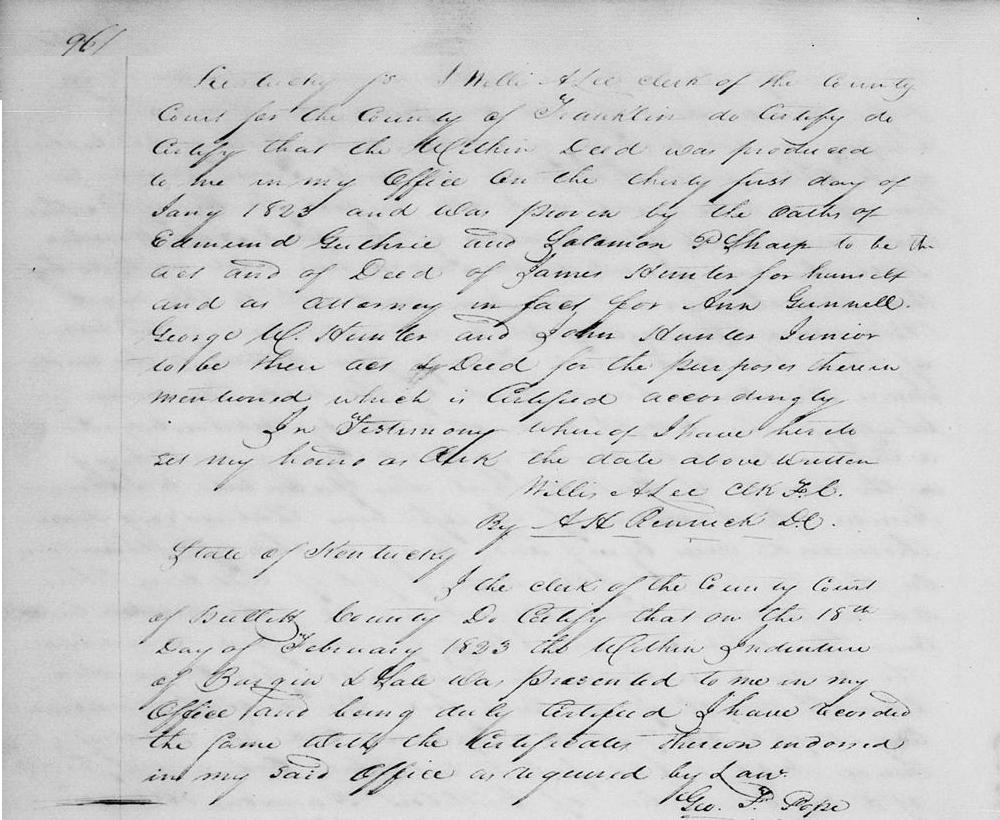 96/
Kentucky ss I Willis A Lee clerk of the County
Court for the County of Franklin do Certify do
Certify that the Within Deed was produced
to me in my Office on the thirty first day of
Jany 1823 and was proven by the oaths of
Edmund Guthrie and Solomon P Sharp to be the
act and of Deed of James Hunter for himself
and as attorney in fact for Ann Gunnell
George W. Hunter and John Hunter Junior
to be their act & Deed for the purposes therein
mentioned which is Certified accordingly
In Testimony whereof I have hereto
set my hand as Clerk the date above written
Willis A Lee Clk F.C.
By A H Rennick DC.
State of Kentucky
I the clerk of the County Court
of Bullitt County Do Certify that on the 18th
Day of February 1823 the Within Indenture
of Bargin & Sale was Presented to me in my
Office and being duly Certified I have recorded
the same with the Certificates thereon endorsed
in my said Office as required by Law.
Geo. F. Pope